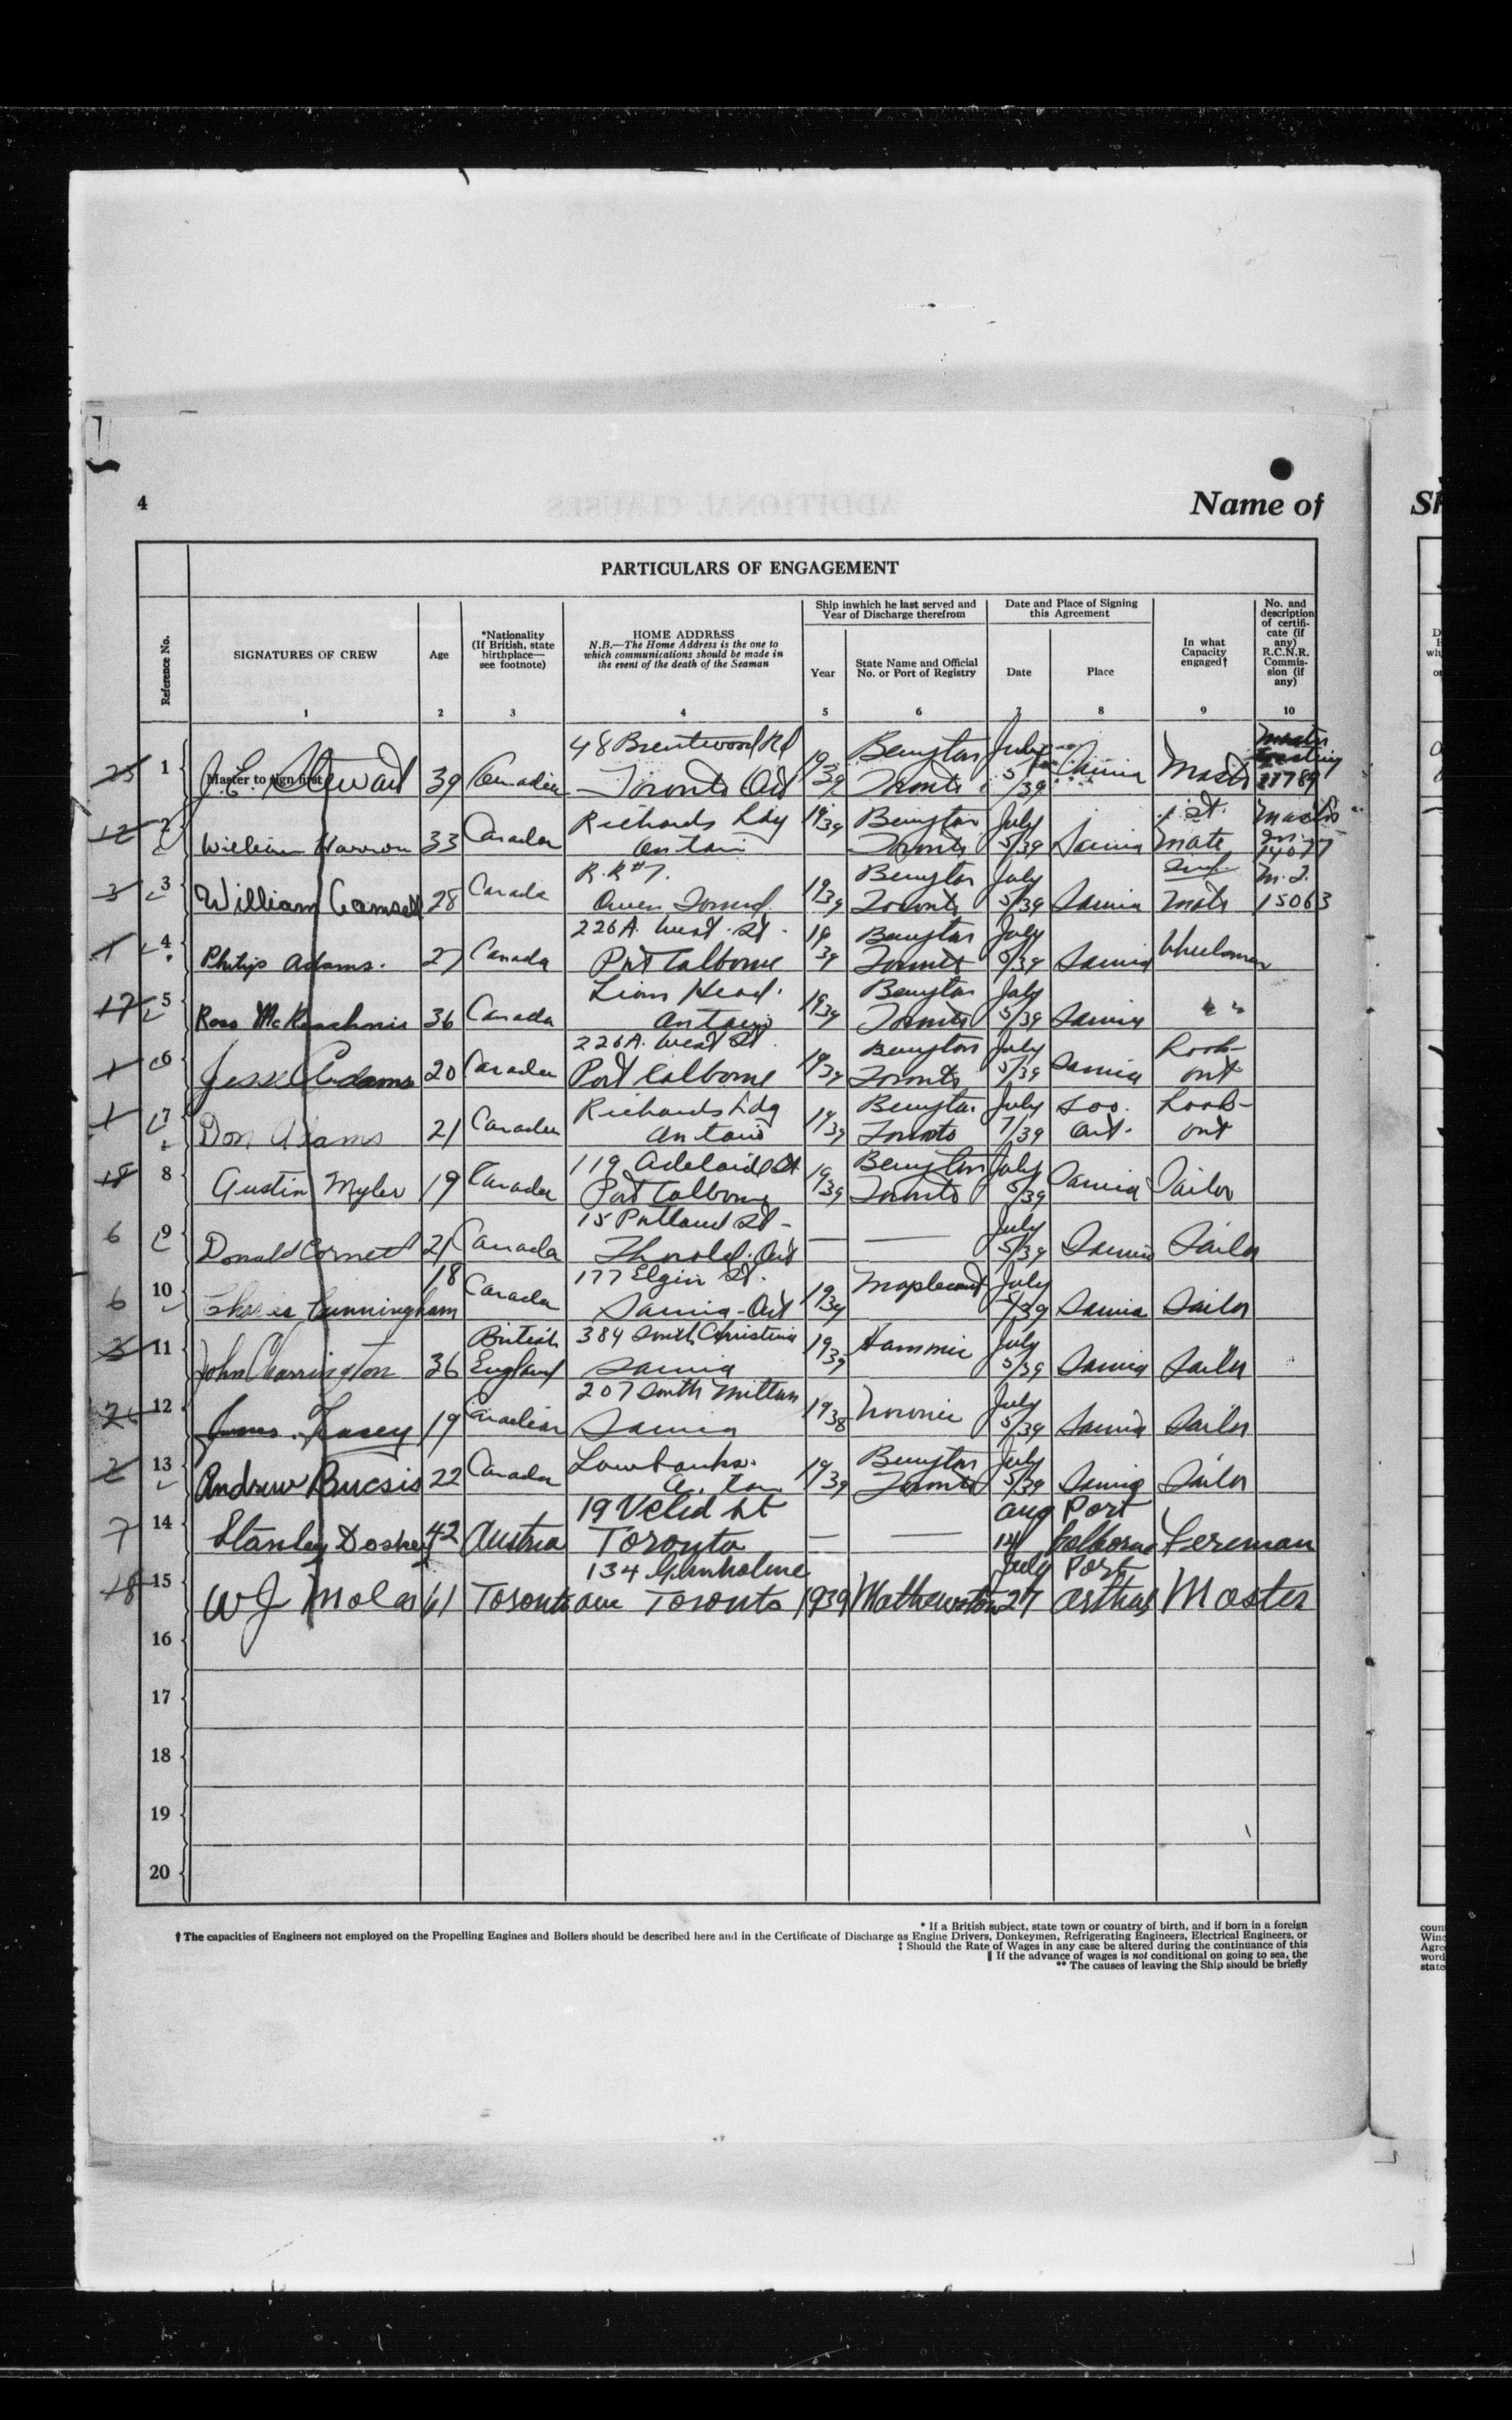 4
Name of
PARTICULARS OF ENGAGEMENT
Reference No.
SIGNATURES OF CREW
1
Age
2
*Nationality
(If British, state
birthplace—
see footnote)
3
HOME ADDRESS
N.B.—The Home Address is the one to
which communications should be made in
the event of the death of the Seaman
4
Ship inwhich he last served and
Year of Discharge therefrom
Year
5
State Name and Official
No. or Port of Registry
6
Date and Place of Signing
this Agreement
Date
7
Place
8
In what
Capacity
engaged†
9
No. and
description
of certifi-
cate (if
any)
R.C.N.R.
Commis-
sion (if
any)
10
25 1 Master to sign first Stewart 39 Canadian 48 Brentwood Rd Toronto Ont 1939 Toronto July 5/39 Sarnia Master
12 2 William 33 Canada Richards Ldg Ontario 1939 Toronto July 5/39 Sarnia 1 st. Mate
3 3 William Gamsell 28 Canada R.R #7. Owen Sound 1939 Toronto July 5/39 Sarnia 2nd Mate 15063
1 4 Philip Adams. 27 Canada 226A. West St. Port Colborne 1939 Toronto July 5/39 Sarnia Wheelsman
17 5 Ross 36 Canada Lions Head. Ontario 1939 Toronto July 5/39 Sarnia " "
1 6 Jesse Adams 20 Canada 226A. West St. Port Colborne 1939 Toronto July 5/39 Sarnia Look-out
1 7 Don Adams 21 Canada Richards Ldg Ontario 1939 Toronto July 7/39 Soo. Ont. Look-out
18 8 Austin Myler 19 Canada 119 Adelaide St Port Colborne 1939 Toronto July 5/39 Sarnia Sailor
6 9 Donald Cornett 21 Canada 15 St- Thorold. Ont — — July 5/39 Sarnia Sailor
6 10 Cunningham 18 Canada 177 Elgin St. Sarnia-Ont 1939 July 5/39 Sarnia Sailor
3 11 John Charrington 36 British England 384 South Christina Sarnia 1939 July 5/39 Sarnia Sailor
12 19 Canadian 207 South Mitton Sarnia 1938 Noronic July 5/39 Sarnia Sailor
2 13 Andrew Bucsis 22 Canada Lowbanks. 1939 Toronto July 5/39 Sarnia Sailor
7 14 Stanley 42 Austria 19 St Toronto — — Aug 14 Port Colborne Fereman
18 15 W J 61 Toronto 134 Glenholme ave Toronto 1939 Mathewston July 27 Port Arthur Master
16
17
18
19
20
* If a British subject, state town or country of birth, and if born in a foreign
† The capacities of Engineers not employed on the Propelling Engines and Boilers should be described here and in the Certificate of Discharge as Engine Drivers, Donkeymen, Refrigerating Engineers, Electrical Engineers, or
‡ Should the Rate of Wages in any case be altered during the continuance of this
‖ If the advance of wages is not conditional on going to sea, the
** The causes of leaving the Ship should be briefly